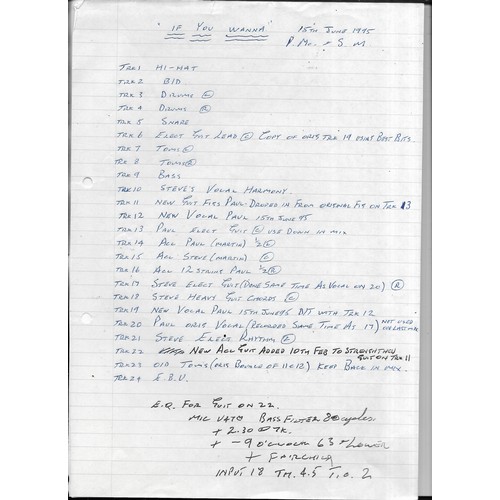 "IF YOU WANNA" 15TH JUNE 1995
P. Mc. + S. M
TRK 1 HI-HAT
TRK 2 B/D
TRK 3 DRUMS Ⓛ
TRK 4 DRUMS Ⓡ
TRK 5 SNARE
TRK 6 ELECT GUIT LEAD Ⓒ COPY OF ORIG TRK 19 USING BEST BITS.
TRK 7 TOMS
TRK 8 TOMS
TRK 9 BASS
TRK 10 STEVE'S VOCAL HARMONY.
TRK 11 NEW GUIT FIGS PAUL DROPED IN FROM ORIGINAL FIG ON TRK 13
TRK 12 NEW VOCAL PAUL 15TH JUNE 95
TRK 13 PAUL ELECT GUIT USE DOWN IN MIX
TRK 14 ACC PAUL (MARTIN) 1/2
TRK 15 ACC STEVE (MARTIN)
TRK 16 ACC 12 STRING PAUL 1/2
TRK 17 STEVE ELECT GUIT (DONE SAME TIME AS VOCAL ON 20) Ⓡ
TRK 18 STEVE HEAVY GUIT CHORDS Ⓒ
TRK 19 NEW VOCAL PAUL 15TH JUNE 95 D/T WITH TRK 12
TRK 20 PAUL ORIG VOCAL (RECORDED SAME TIME AS 17) NOT USED
TRK 21 STEVE ELEC RHYTHM
TRK 22 NEW ACC GUIT ADDED 10TH FEB TO STRENGTHEN GUIT ON TRK 11
TRK 23 O/D TOMS (ORIG BOUNCE OF 11+12) KEEP BACK IN MIX.
TRK 24 E.B.U.
E.Q. FOR GUIT ON 22.
MIC BASS FILTER 80 cycles
+ 2.30 @ 7K.
+ -9 O'CLOCK 63 + LOWER
+ FAIRCHILD
INPUT 18 TH. 4.5 T.C. 2